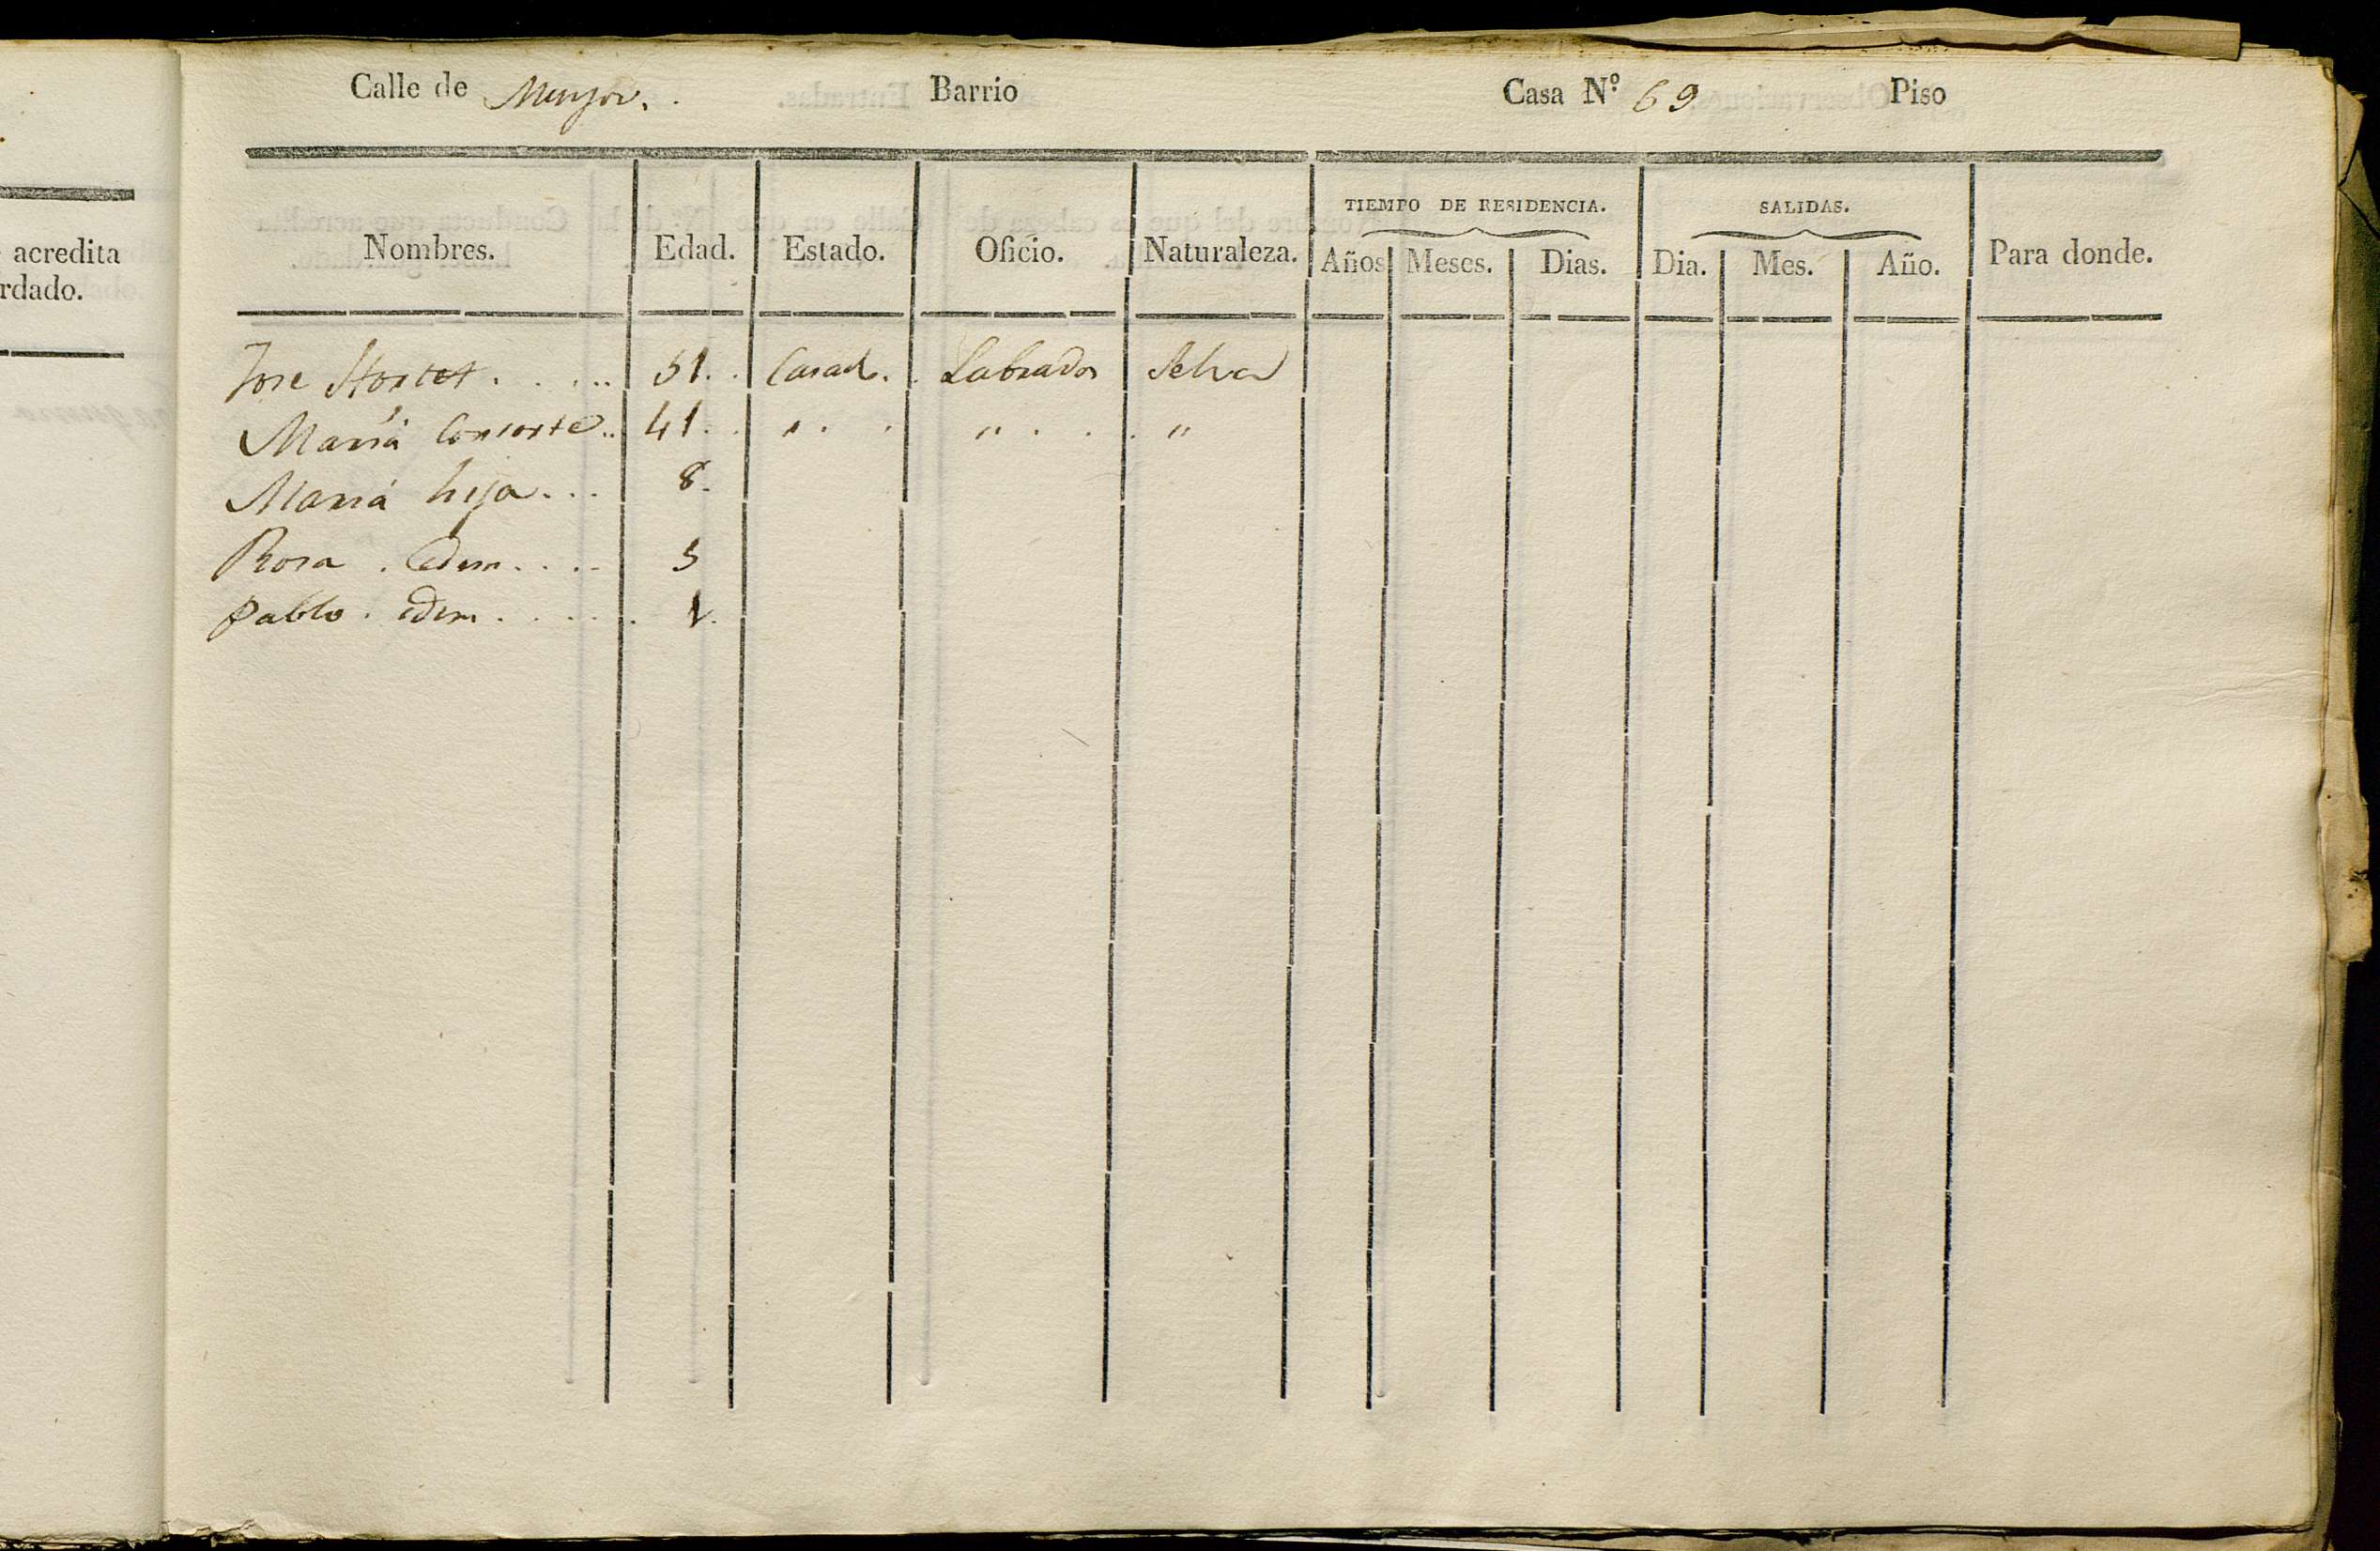 Calle de Mayor. Barrio Casa Nº 69 Piso
acredita
rdado.
TIEMPO DE RESIDENCIA. SALIDAS.
Nombres. Edad. Estado. Oficio. Naturaleza. Años Meses. Dias. Dia. Mes. Año. Para donde.
Jose Hortet . . . . . 51 . . Casado . . Labrador Selva
Maria Consorte . . 41 . . " . . " . . . "
Maria hija . . . 8 .
Rosa . Edem . . . . 5
Pablo . edem . . . . . . 1 .